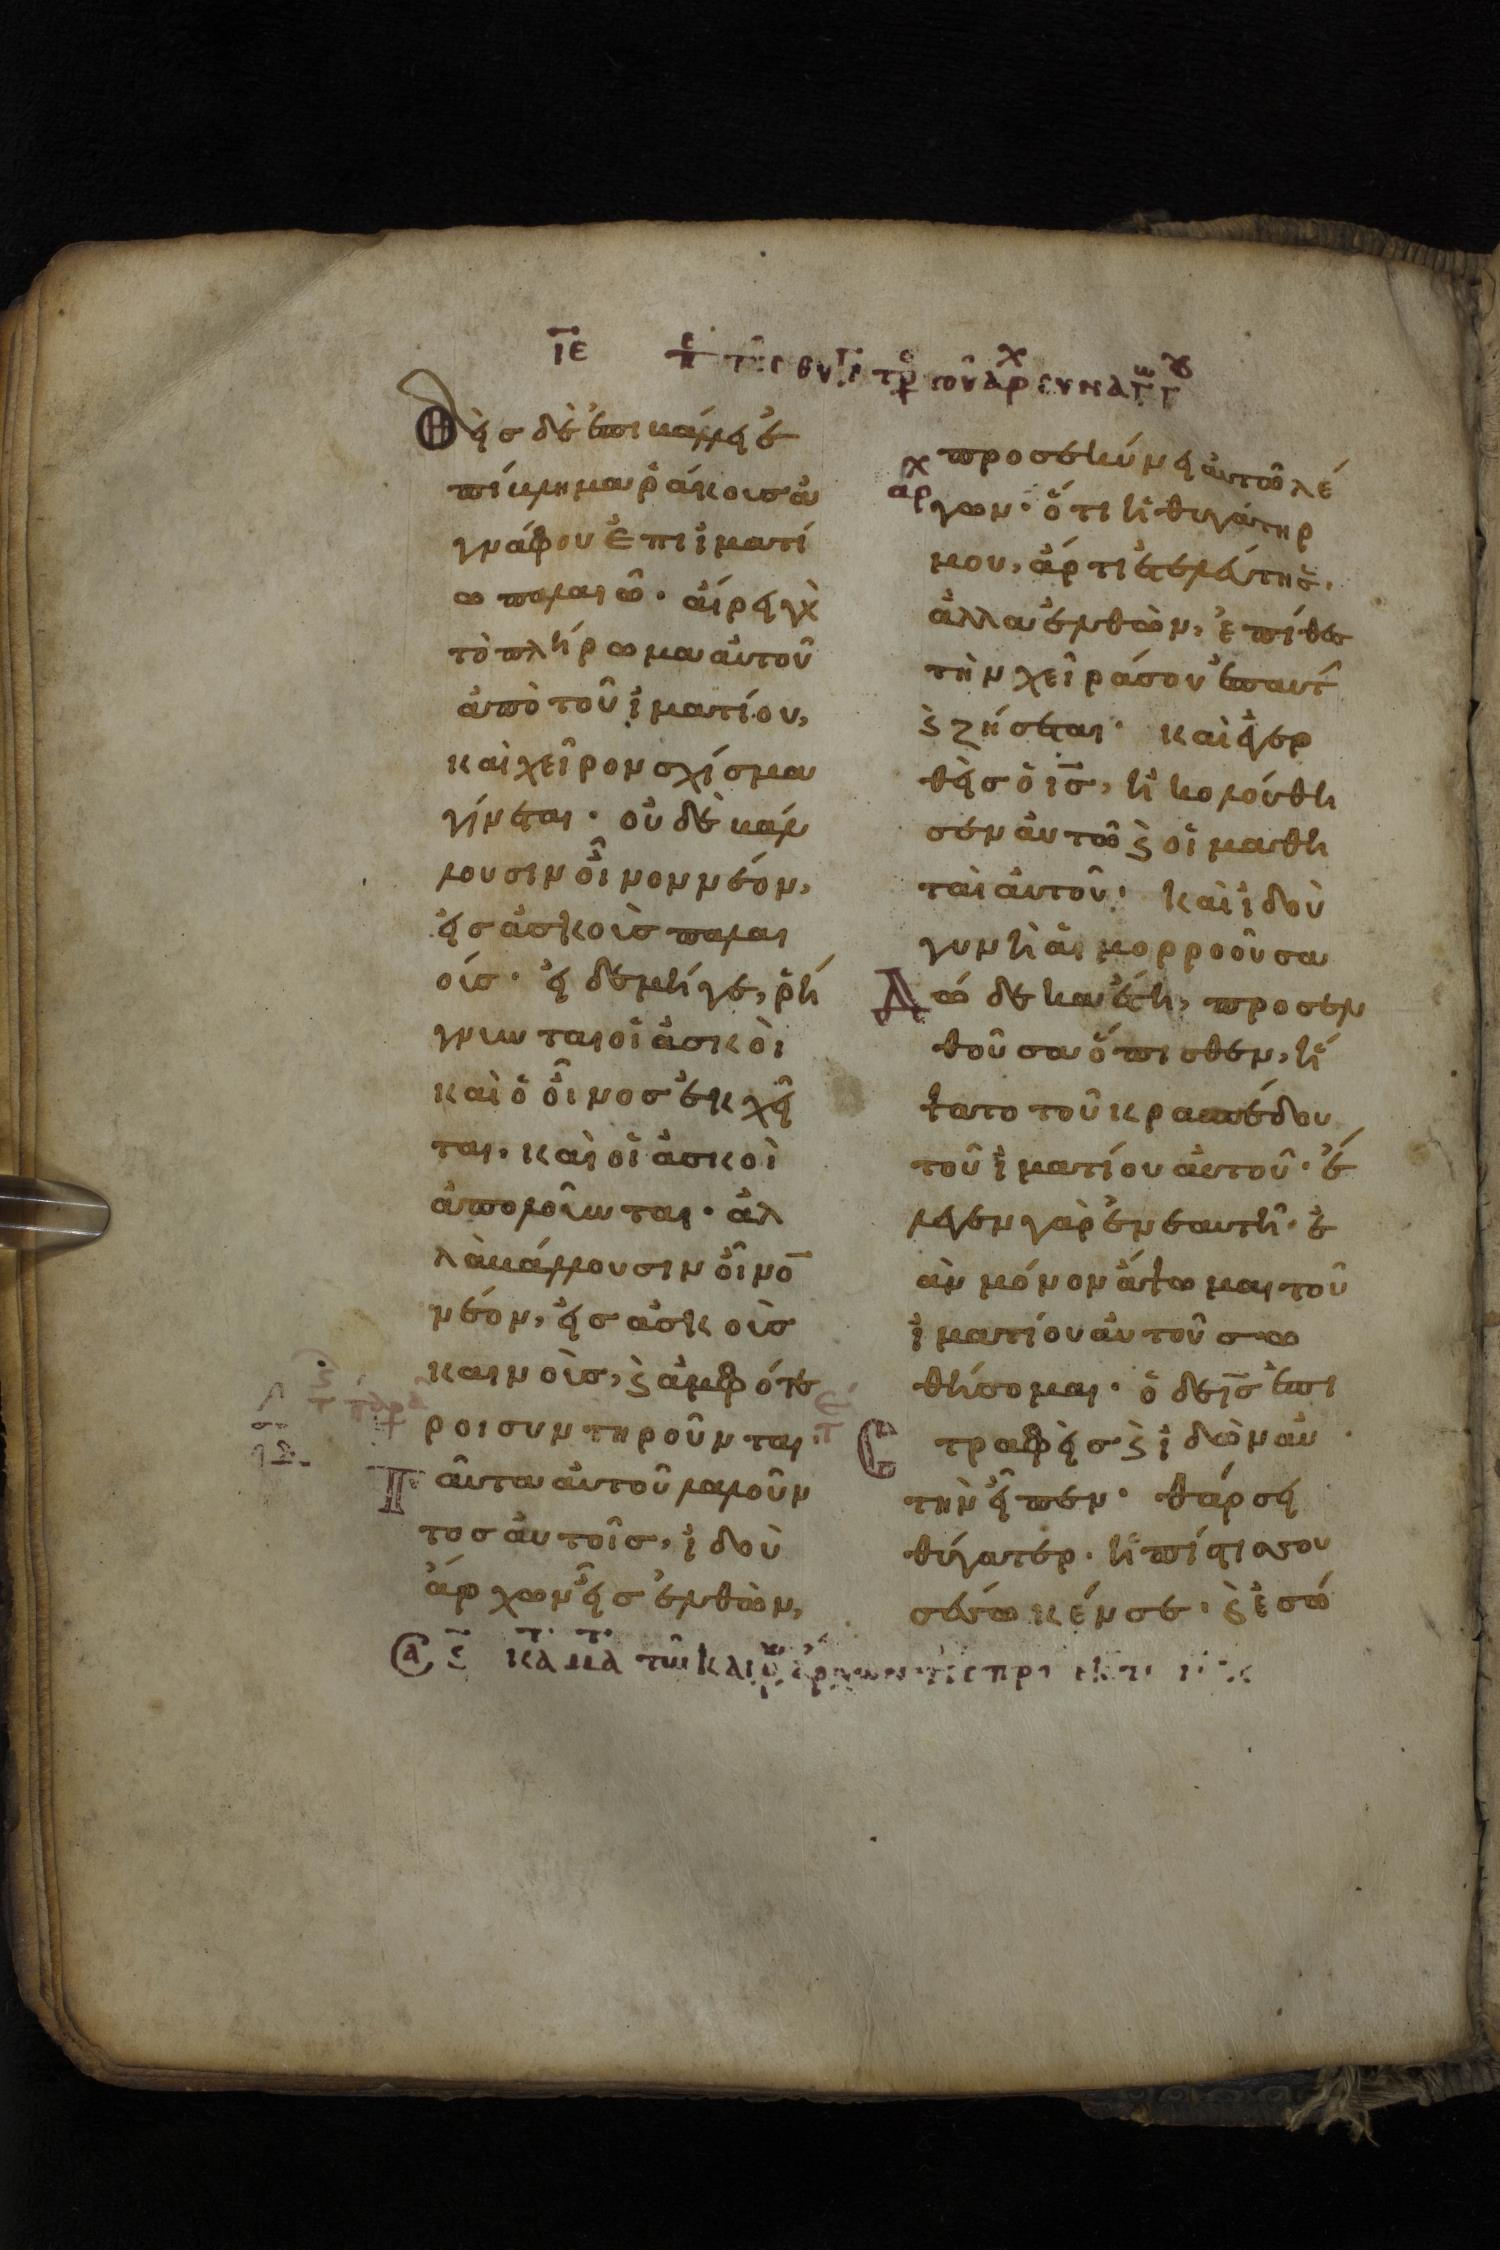 ιε περι της θυγατρος του αρχισυναγωγου
Θεὶς δὲ ἐπικάλλει ἐ
πίκλημα ῥάκουσ ἀ
γνάφου ἐπι ἱματί
ω παλαιῶ· αἴρει γὰρ
τὸ πλήρωμα αὐτοῦ
ἀπὸ τοῦ ἱματίου,
καὶ χεῖρον σχίσμα
γίνεται· οὐδὲ βάλ
λουσιν οἶνον νέον,
εἰσ ἀσκοὺσ παλαι
οὺσ· εἰ δὲ μήγε, ῥή
γνυνται οἱ ἀσκοὶ
καὶ ὁ οἶνοσ ἐκχεῖ
ται, καὶ οἱ ἀσκοὶ
ἀπολοῦνται· ἀλ
λὰ βάλλουσιν οἶνο̅
νέον, εἰσ ἀσκοὺσ
καινοὺσ, ϗ ἀμφότε
ροι συντηροῦνται·
Ταῦτα αὐτοῦ λαλοῦν
τοσ αὐτοῖσ, ἰδοὺ
ἄρχων εἷσ ἐλθὼν,
προσεκύνει αὐτῶ λέ
αρχ
γων· ὅτι ἡ θυγάτηρ
μου, ἄρτι ἐτελεύτησ̅·
ἀλλα ἐλθὼν, ἐπίθεσ
τὴν χεῖρά σου ἐπ αυτ̅
ϗ ζήσεται· καὶ ἐγερ
θεὶσ ὁ ι̅σ̅, ἠκολούθη
σεν αὐτῶ ϗ οἱ μαθη
ταὶ αὐτοῦ· Καὶ ἰδοὺ
γυνὴ αἱμορροοῦσα
Δώδεκα ἔτη, προσελ
θοῦσα ὄπισθεν, ἥ
ψατο τοῦ κρασπέδου
τοῦ ἱματίου αὐτοῦ· ἔ
λεγεν γὰρ ἐν ἑαυτῆ· ἐ
ὰν μόνον ἅψωμαι τοῦ
ἱματίου αὐτοῦ σω
θήσομαι· ὁ δὲ ι̅σ̅ ἐπι
Στραφεὶσ ϗ ἰδὼν αὐ
τὴν εἶπεν· θάρσει
θύγατερ· ἡ πίστισ σου
σέσωκέν σε· ϗ ἐσώ